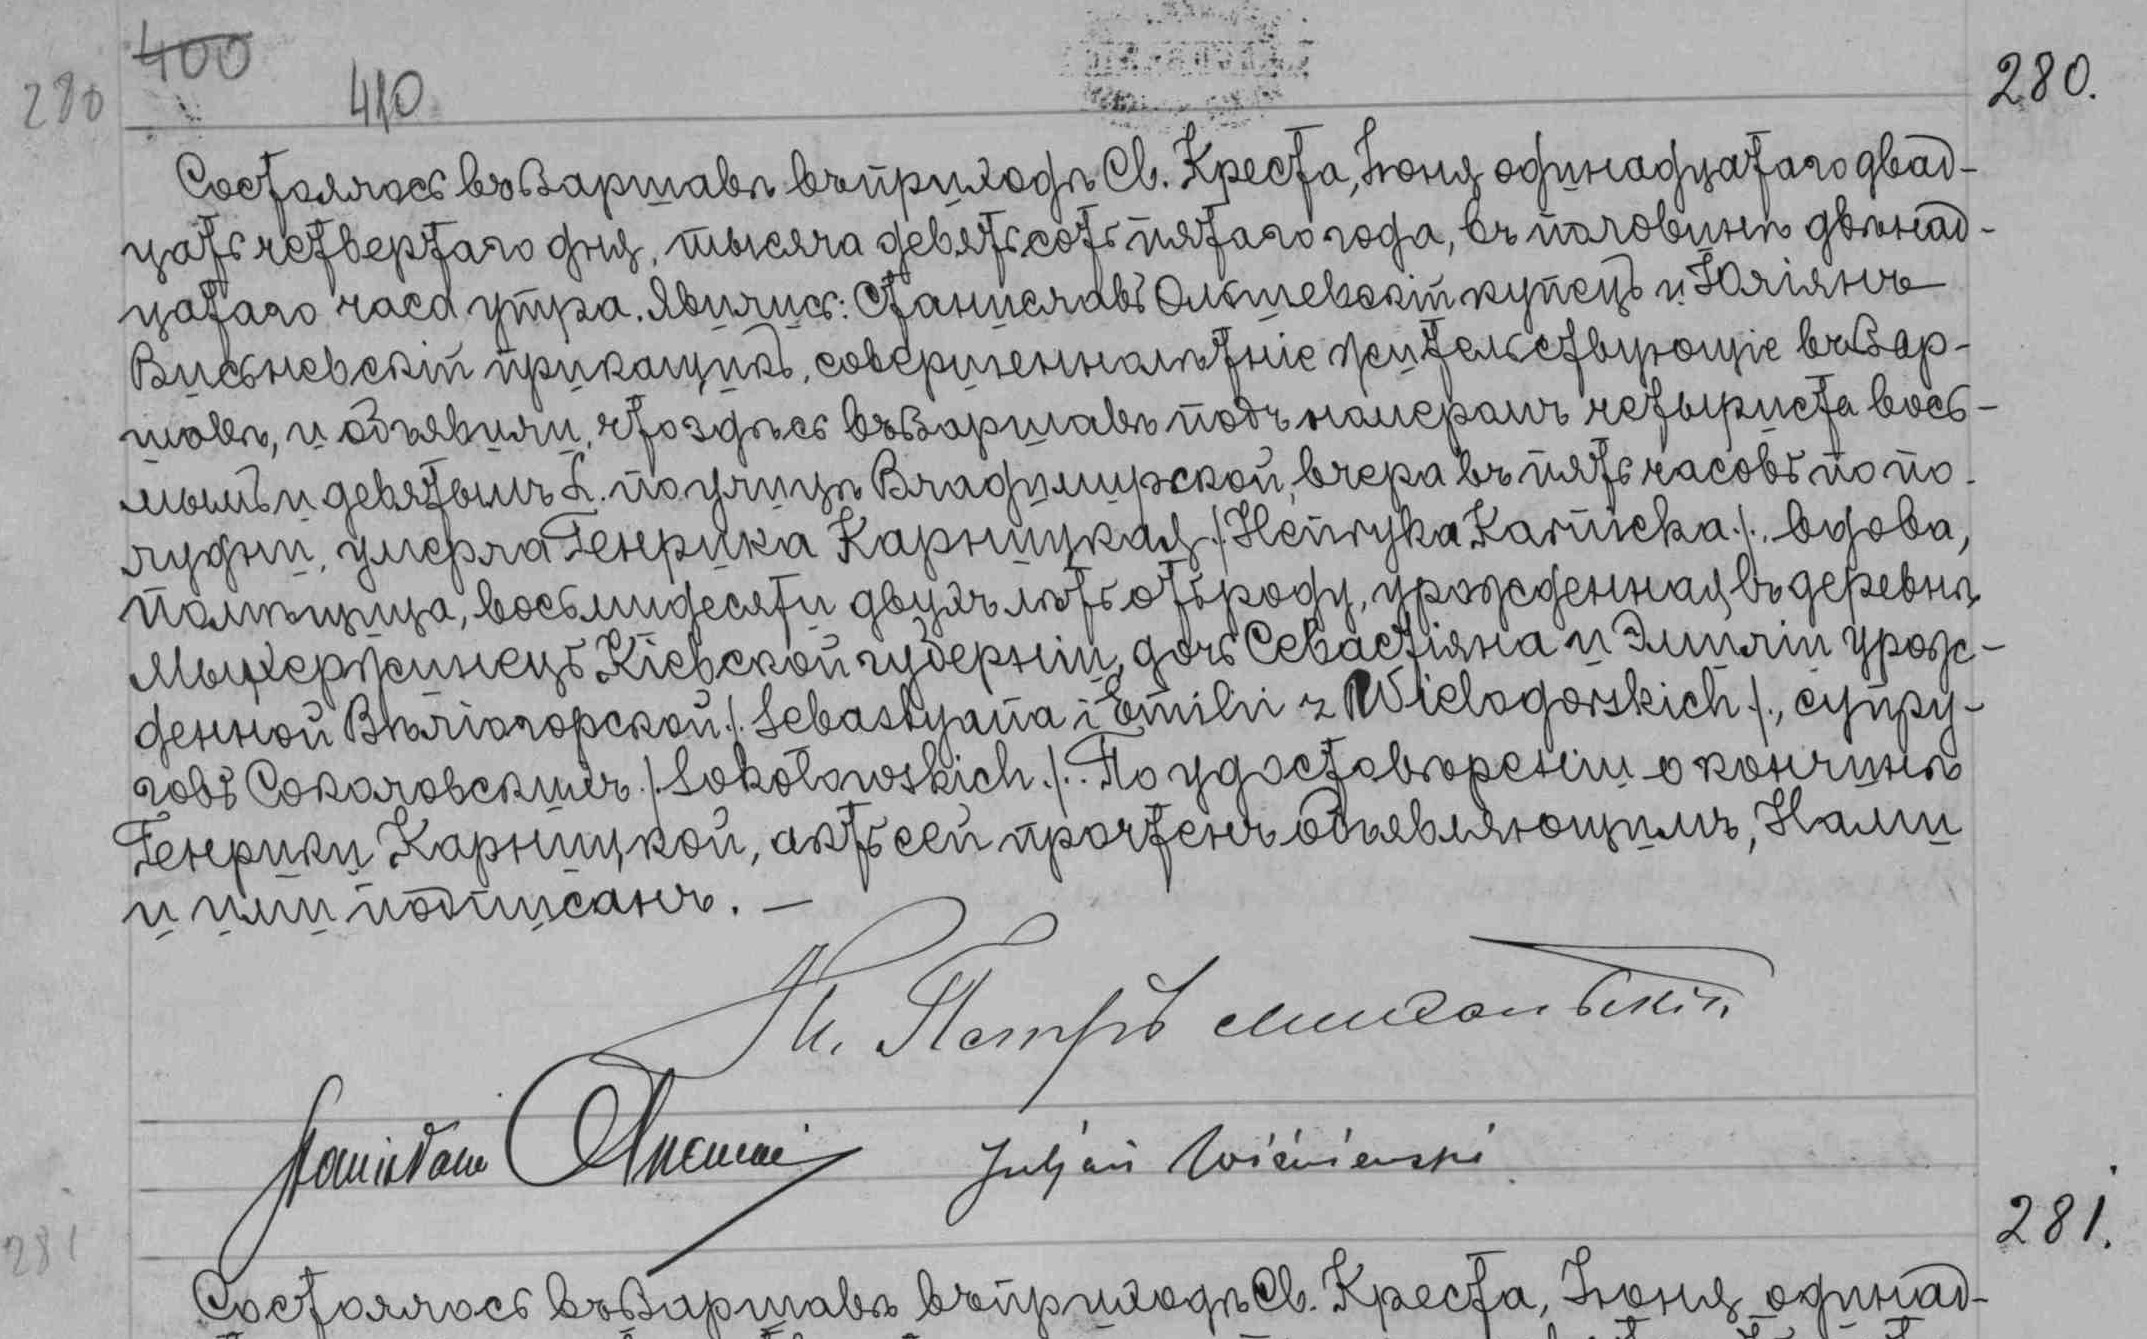 280 400 410 280.
Состоялось въ Варшавѣ въ приходѣ Св. Креста, Іюня одинадцатаго двад-
цать четвертаго дня, тысяча девятьсотъ пятаго года, въ половинѣ двѣнад-
цатаго часа утра. Явились: Станиславъ Ольшевскій купецъ и Юліянъ
Висьневскій прикащикъ, совершеннолѣтніе жительствующіе въ Вар-
шавѣ, и объявили, что здѣсь въ Варшавѣ подъ номеромъ четыриста вось-
мымъ и девятымъ L. по улицѣ Владимирской, вчера въ пять часовъ по по-
лудни, умерла Генрика Карницкая /Henryka Karnicka/. вдова,
помѣщица, восьмидесяти двухъ лѣтъ отъ роду, урожденная въ деревнѣ
Кіевской губерніи, дочь Севастіяна и Эмиліи урож-
денной Вѣліогорской /Sebastyana i Emilii z Wielogorskich/., супру-
говъ Соколовскихъ /Sokołowskich/. По удостовѣреніи о кончинѣ
Генрики Карницкой, актъ сей прочтенъ объявляющимъ, Нами
и ими подписанъ. —
Петръ
Stanisław Julian Wiśniewski
281 281.
Состоялось въ Варшавѣ въ приходѣ Св. Креста, Іюня одинад-